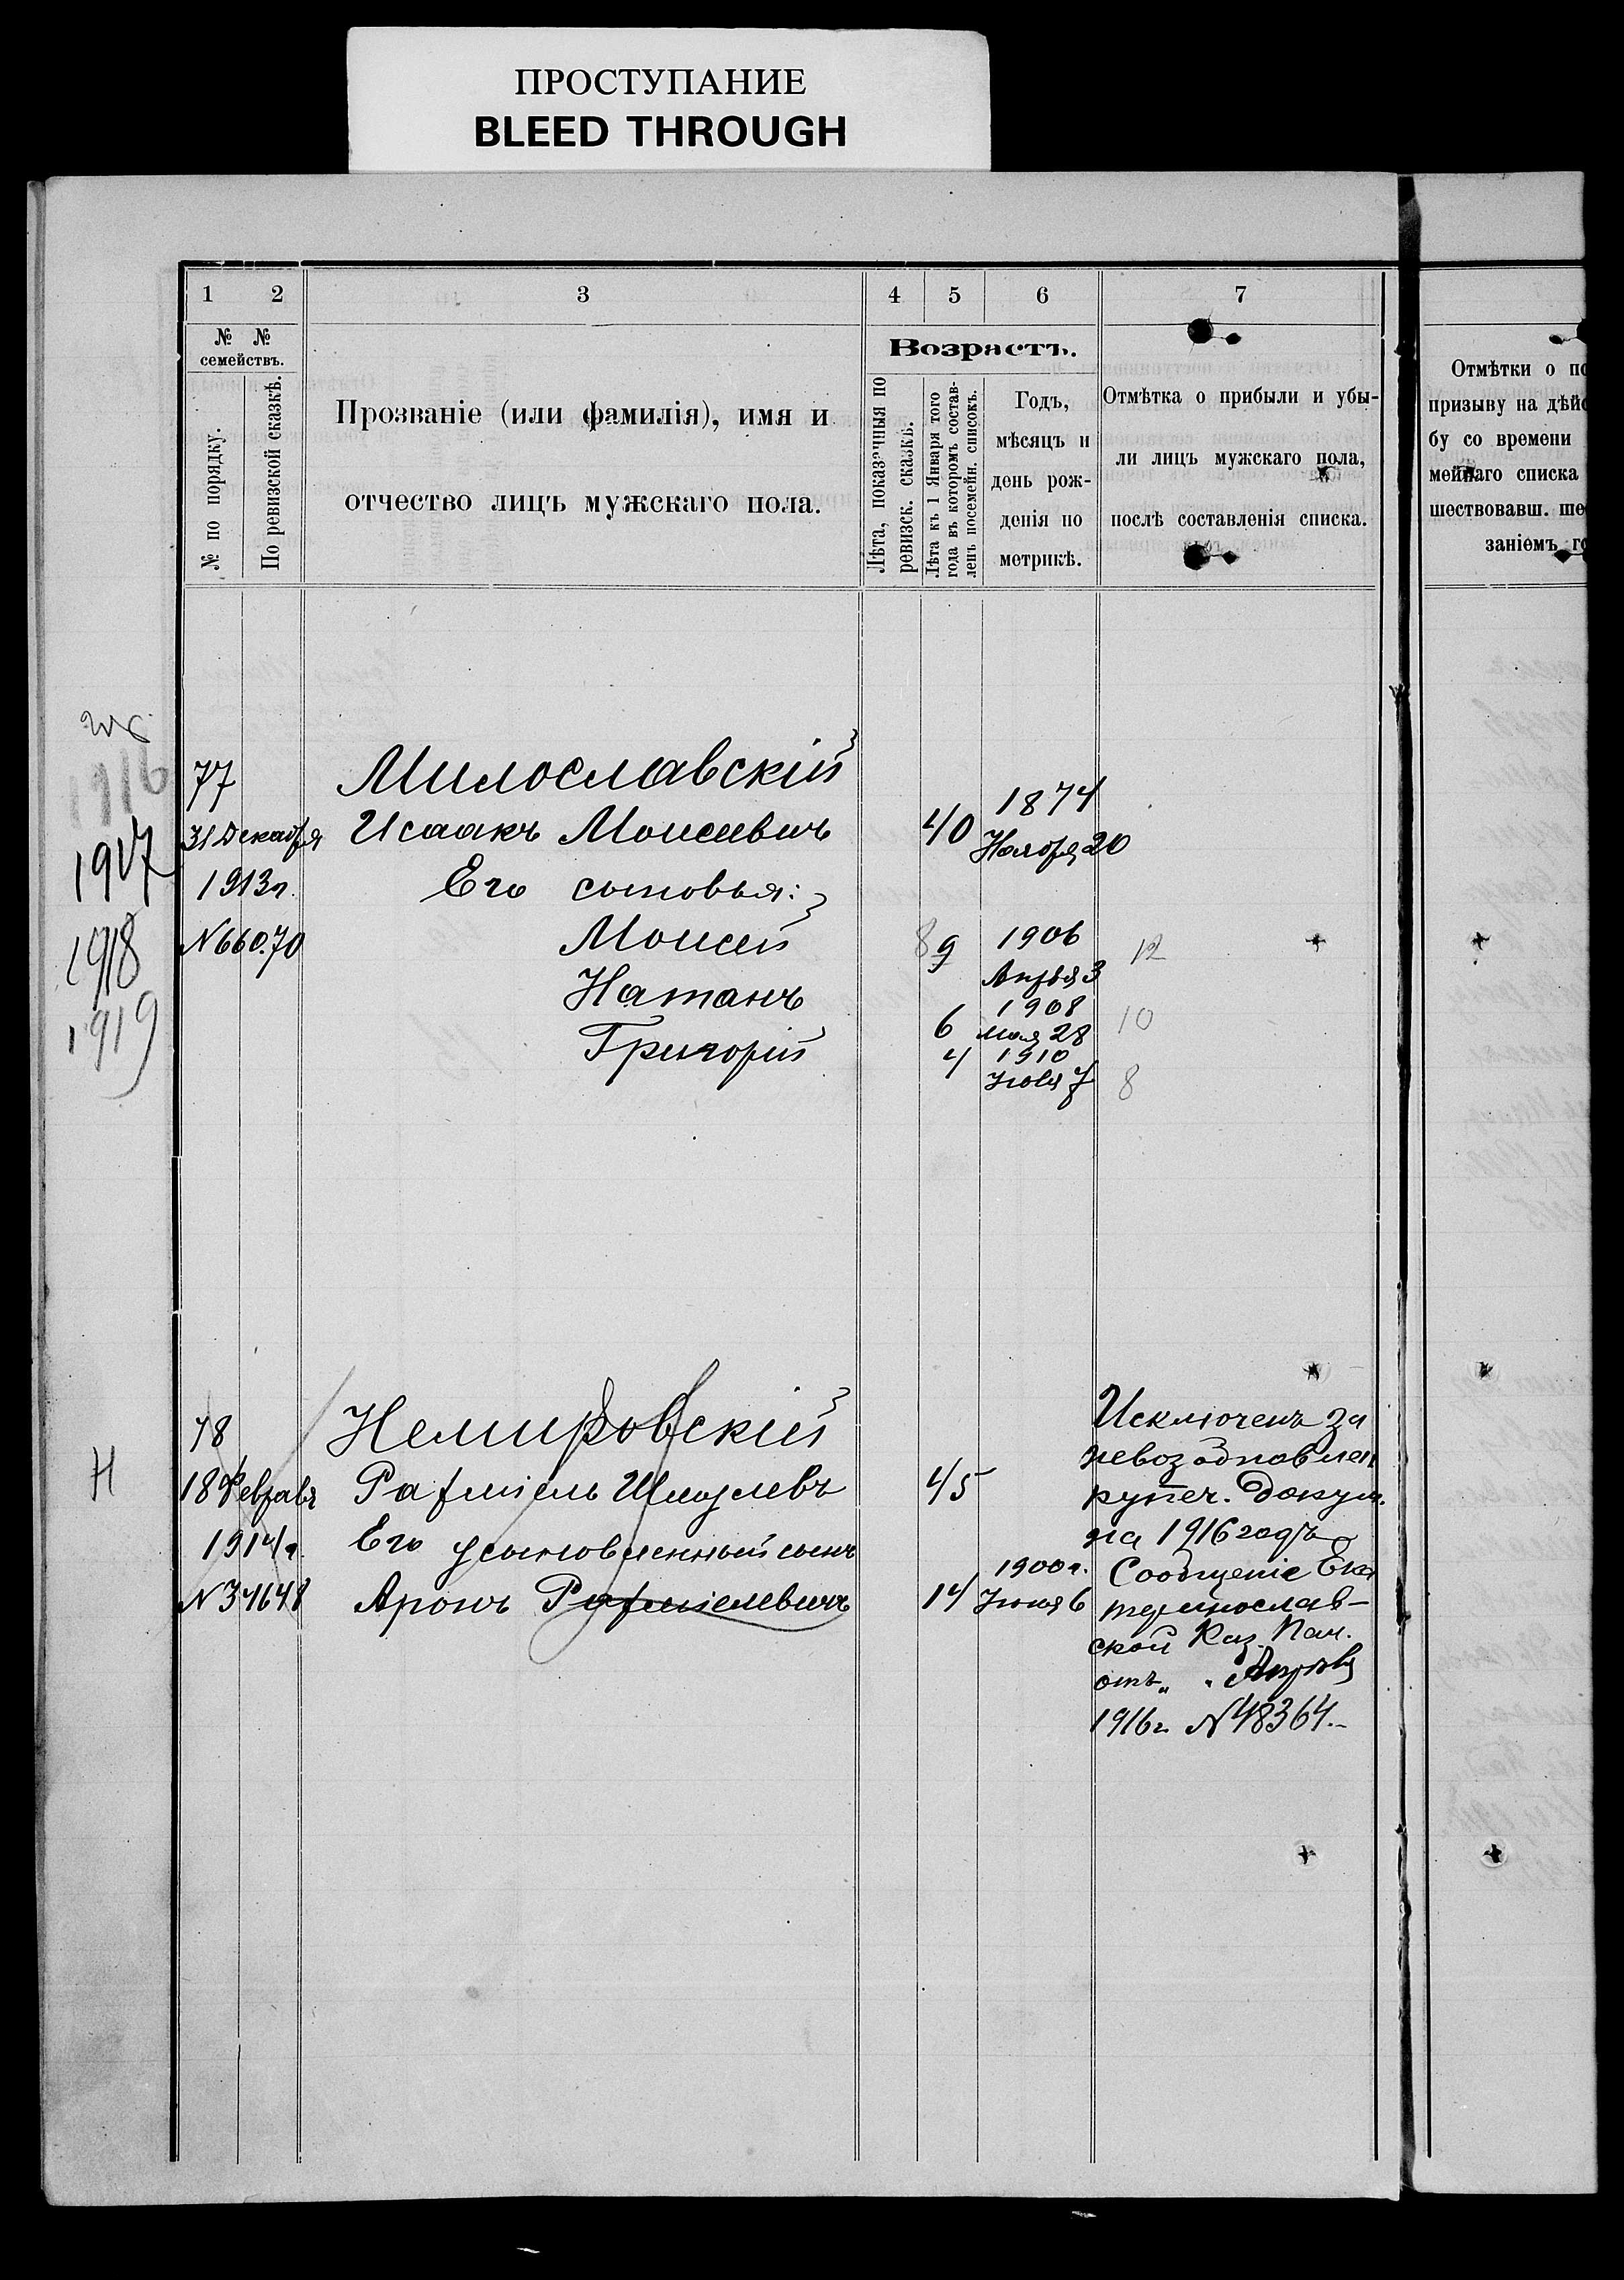 ПРОСТУПАНИЕ
BLEED THROUGH
1 2 3 4 5 6 7
№ №
семействъ.
№ по порядку.
По ревизской сказкѣ.
Прозваніе (или фамилія), имя и
отчество лицъ мужскаго пола.
Возрастъ.
Лѣта, показанныя по
ревизск. сказкѣ.
Лѣта къ 1 Января того
года въ которомъ состав-
ленъ посемейн. списокъ.
Годъ,
мѣсяцъ и
день рож-
денія по
метрикѣ.
Отмѣтка о прибыли и убы-
ли лицъ мужскаго пола,
послѣ составленія списка.
Отмѣтки о по
призыву на дѣйс
бу со времени
мейнаго списка
шествовавш. ше
заніемъ го
1916
1917
1918
1919
77 Милославскій 1874
31 Декабря Исаакъ Моисеевичъ 40 Ноября 20
1913г. Его сыновья:
N 66070 Моисей 8 9 1906 12
Апрѣля 3
Натанъ 6 1908 10
Мая 28
Григорій 4 1910
Іюля 7 8
78 Немировскій
Н 18 Февраля Рафаиель Шмулевъ 45
1914г. Его усыновленный сынъ 1900г.
N 34648 Аронъ Рафаиелевичъ 14 Іюня 6
Исключенъ за
невозобновлен
купеч. докум.
на 1916 годъ
Сообщеніе Ека
теринослав-
ской Каз. Пал.
отъ „ . Апрѣля
1916г. N 48364.-